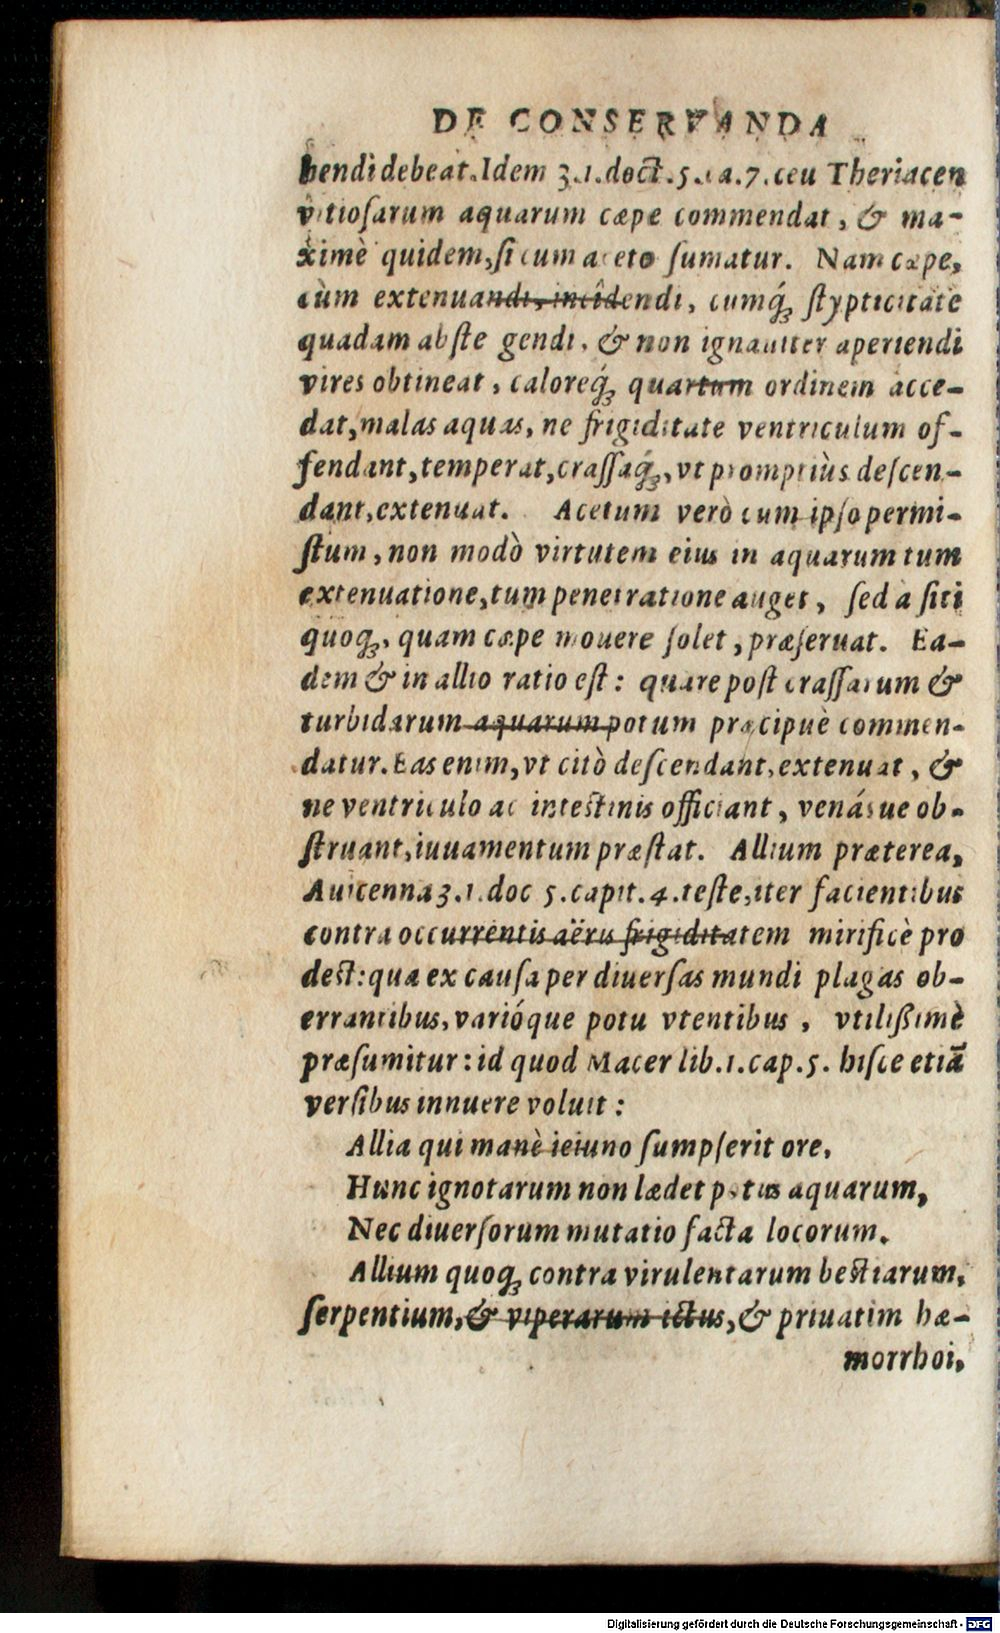 DE CONSERVANDA
hendi debeat. Idem 3.1. doct. 5. ca. 7. ceu Theriacen
vitiosarum aquarum cæpe commendat, & ma-
ximè quidem, si cum aceto sumatur. Nam cæpe,
cùm extenuandi, incîdendi, cumq́ꝫ stypticitate
quadam abstegendi, & non ignauiter aperiendi
vires obtineat, caloreq́ꝫ quartum ordinem acce-
dat, malas aquas, ne frigiditate ventriculum of-
fendant, temperat, crassaq́ꝫ, vt promptiùs descen-
dant, extenuat. Acetum verò cum ipso permi-
stum, non modò virtutem eius in aquarum tum
extenuatione, tum penetratione auget, sed à siti
quoqꝫ, quam cæpe mouere solet, præseruat. Ea-
dem & in allio ratio est: quare post crassarum &
turbidarum aquarum potum præcipuè commen-
datur. Eas enim, vt citò descendant, extenuat, &
ne ventriculo ac intestinis officiant, venásue ob-
struant, iuuamentum præstat. Allium præterea,
Auicenna 3.1. doc 5. capit. 4. teste, iter facientibus
contra occurrentis aëris frigiditatem mirificè pro
dest: qua ex causa per diuersas mundi plagas ob-
errantibus, varióque potu vtentibus, vtilißimè
præsumitur: id quod Macer lib. 1. cap. 5. hisce etiā
versibus innuere voluit:
Allia qui manè ieiuno sumpserit ore,
Hunc ignotarum non lædet potus aquarum,
Nec diuersorum mutatio facta locorum.
Allium quoqꝫ contra virulentarum bestiarum,
serpentium, & viperarum ictus, & priuatim hæ-
morrhoi,
Digitalisierung gefördert durch die Deutsche Forschungsgemeinschaft - DFG